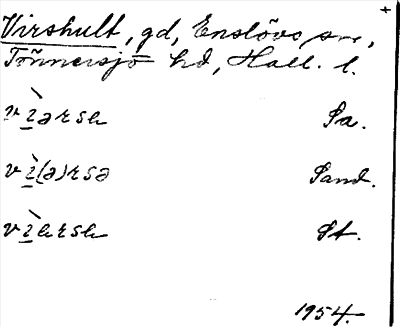 Virshult, gd, Enslövs sn,
Tönnersjö hd, Hall. l.
vìərsəl Sa.
vì(ə)rsə Sand.
St.
1954.
+